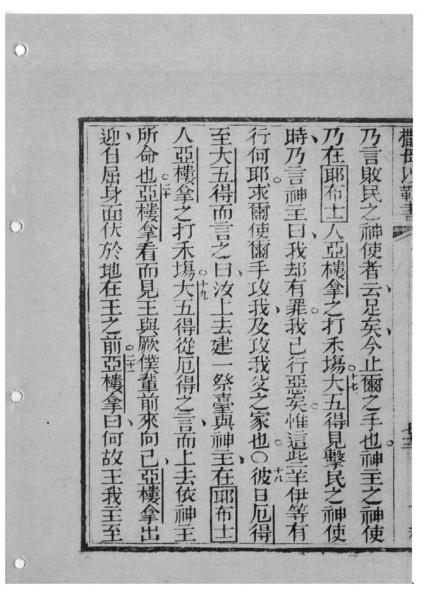 乃言敗民之神使者云足矣今止爾之手也神主之神使
乃在耶布士人亞樓拿之打禾場○十七大五得見擊民之神使
時乃言神主曰我却有罪我已行惡矣惟這些羊伊等有
行何耶求爾使爾手攻我及攻我父之家也○十八彼日厄得
至大五得而言之曰汝上去建一祭臺與神主在耶布士
人亞樓拿之打禾場○十九大五得從厄得之言而上去依神主
所命也○二十亞樓拿看而見王與厥僕輩前來向己亞樓拿出
迎自屈身面伏於地在王之前○二十一亞樓拿曰何故王我主至